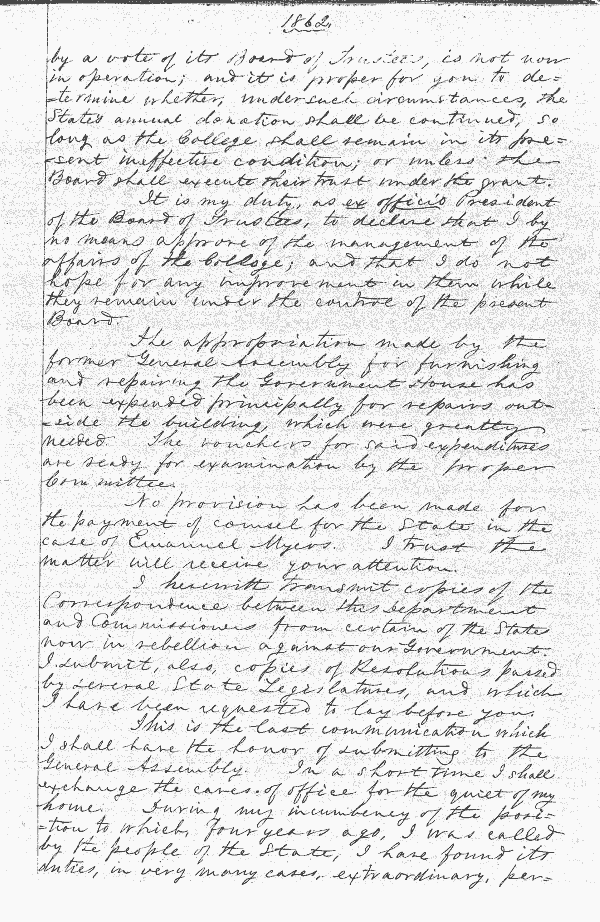 1862.
by a vote of its Board of Trustees, is not now
in operation; and it is proper for you to de=
=termine whether, under such circumstances, the
State's annual donation shall be continued, so
long as the College shall remain in its pre=
=sent ineffective condition; or unless the
Board shall execute their trust under the grant.
It is my duty, as ex officio President
of the Board of Trustees, to declare that I by
no means approve of the management of the
affairs of the College; and that I do not
hope for any improvement in them while
they remain under the control of the present
Board.
The appropriation made by the
former General Assembly for furnishing
and repairing the Government House has
been expended principally for repairs out-
-side the building, which were greatly
needed. The vouchers for said expenditures
are ready for examination by the proper
Committee.
No provision has been made for
the payment of counsel for the State in the
case of Emanuel Myers. I trust the
matter will receive your attention.
I herewith transmit copies of the
Correspondence between this Department
and Commissioners from certain of the States
now in rebellion against our Government.
I submit, also, copies of Resolutions passed
by several State Legislatures, and which
I have been requested to lay before you.
This is the last communication which
I shall have the honor of submitting to the
General Assembly. In a short time I shall
exchange the cares of office for the quiet of my
home. During my incumbency of the posi=
=tion to which, four years ago, I was called
by the people of the State, I have found its
duties, in very many cases, extraordinary, per=